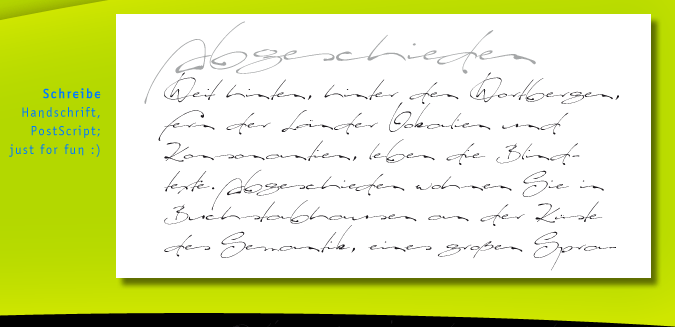 Schreibe
Handschrift,
PostScript;
just for fun :)
Abgeschieden
Weit hinten, hinter den Wortbergen,
fern der Länder Vokalien und
Konsonantien, leben die Blind-
texte. Abgeschieden wohnen Sie in
Buchstabhausen an der Küste
des Semantik, eines großen Spra-